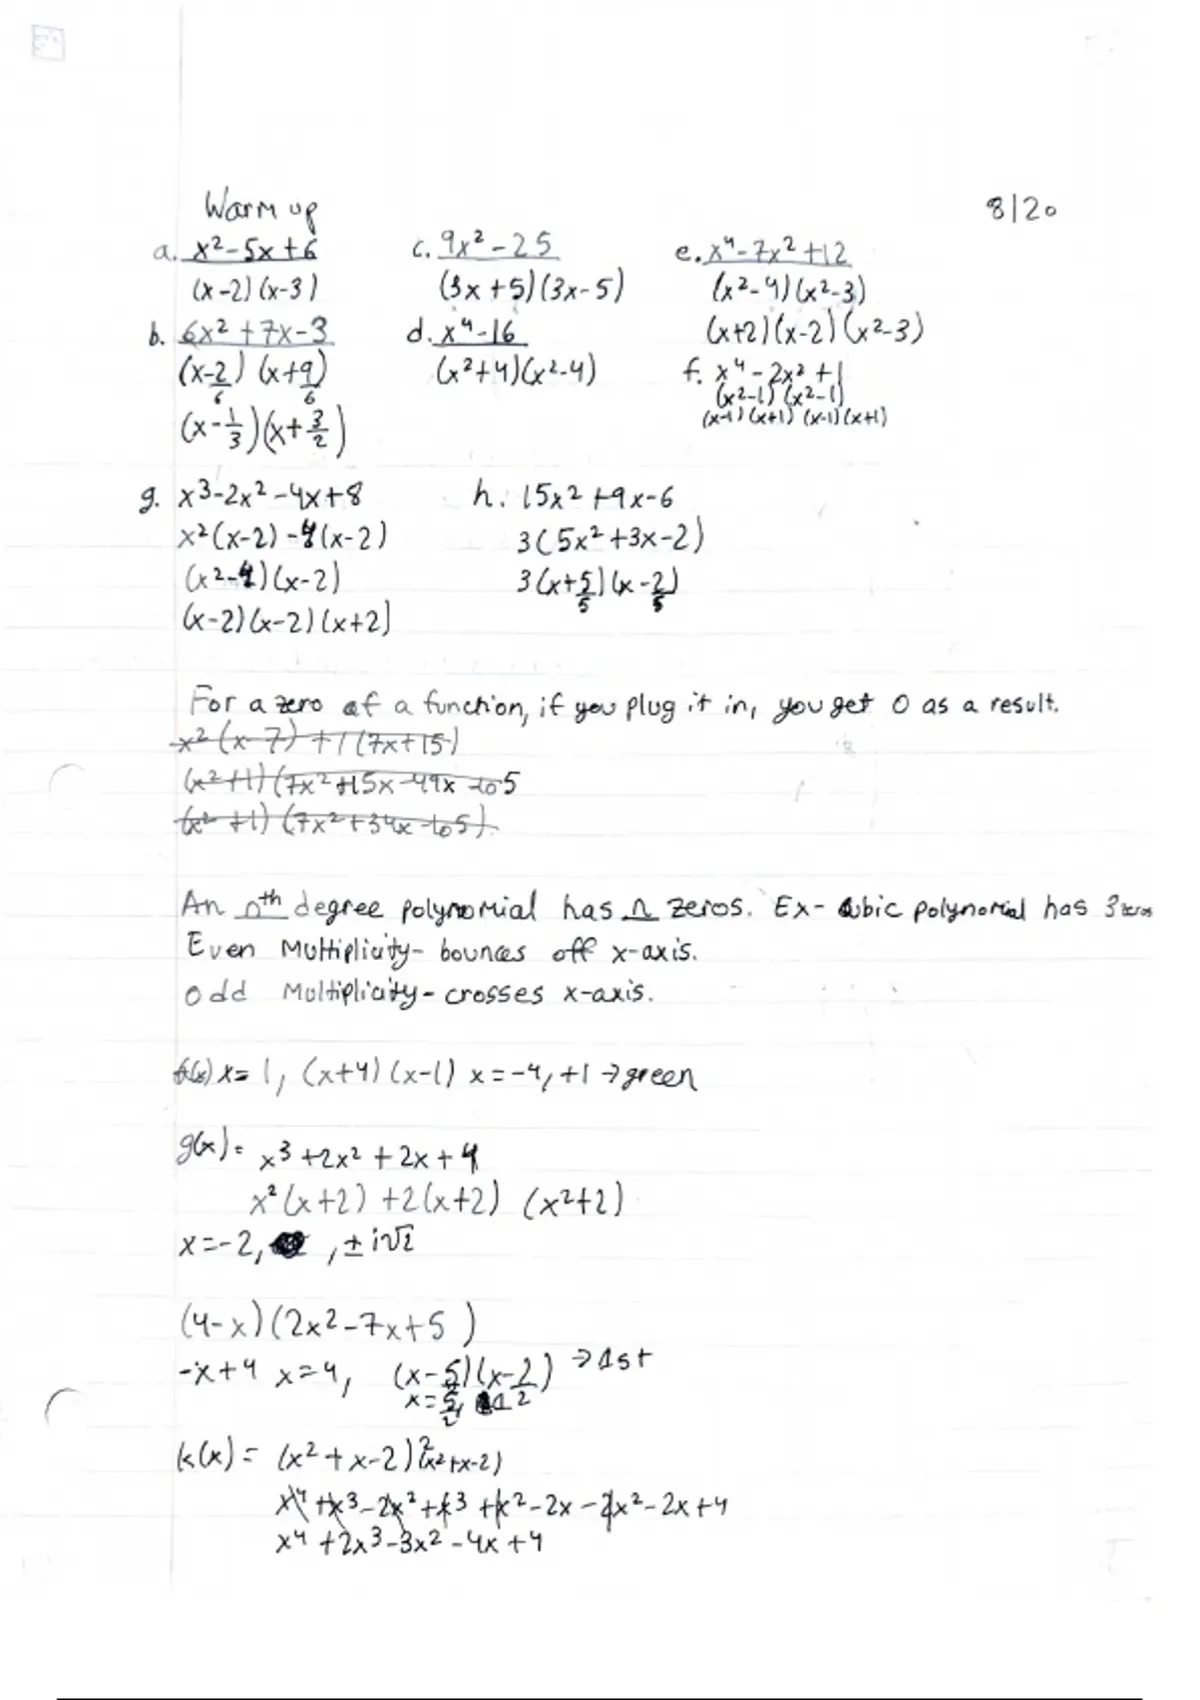 Warm up 8/20
a. x²-5x+6 c. 9x²-25 e. x⁴-7x²+12
(x-2)(x-3) (3x+5)(3x-5) (x²-4)(x²-3)
b. 6x²+7x-3 d. x⁴-16 (x+2)(x-2)(x²-3)
(x-2/6)(x+9/6) (x²+4)(x²-4) f. x⁴-2x²+1
(x²-1)(x²-1)
(x-1/3)(x+3/2) (x-1)(x+1)(x-1)(x+1)
g. x³-2x²-4x+8 h. 15x²+9x-6
x²(x-2)-4(x-2) 3(5x²+3x-2)
(x²-4)(x-2) 3(x+5/5)(x-2/5)
(x-2)(x-2)(x+2)
For a zero of a function, if you plug it in, you get 0 as a result.
x²(x-7)+1(7x+15)
(x²+1)(7x²+15x-49x-105
(x²+1)(7x²+34x-105)
An nth degree polynomial has n zeros. Ex- cubic polynomial has 3 zeros
Even Multiplicity- bounces off x-axis.
Odd Multiplicity- crosses x-axis.
f(x) x= 1, (x+4)(x-1) x=-4, +1 → green
g(x)= x³+2x²+2x+4
x²(x+2)+2(x+2) (x²+2)
x=-2, , ±i√2
(4-x)(2x²-7x+5)
-x+4 x=4, (x-5/2)(x-2/2) → 1st
x=5/2,
k(x)= (x²+x-2)²(x²+x-2)
x⁴+x³-2x²+x³+x²-2x-2x²-2x+4
x⁴+2x³-3x²-4x+4